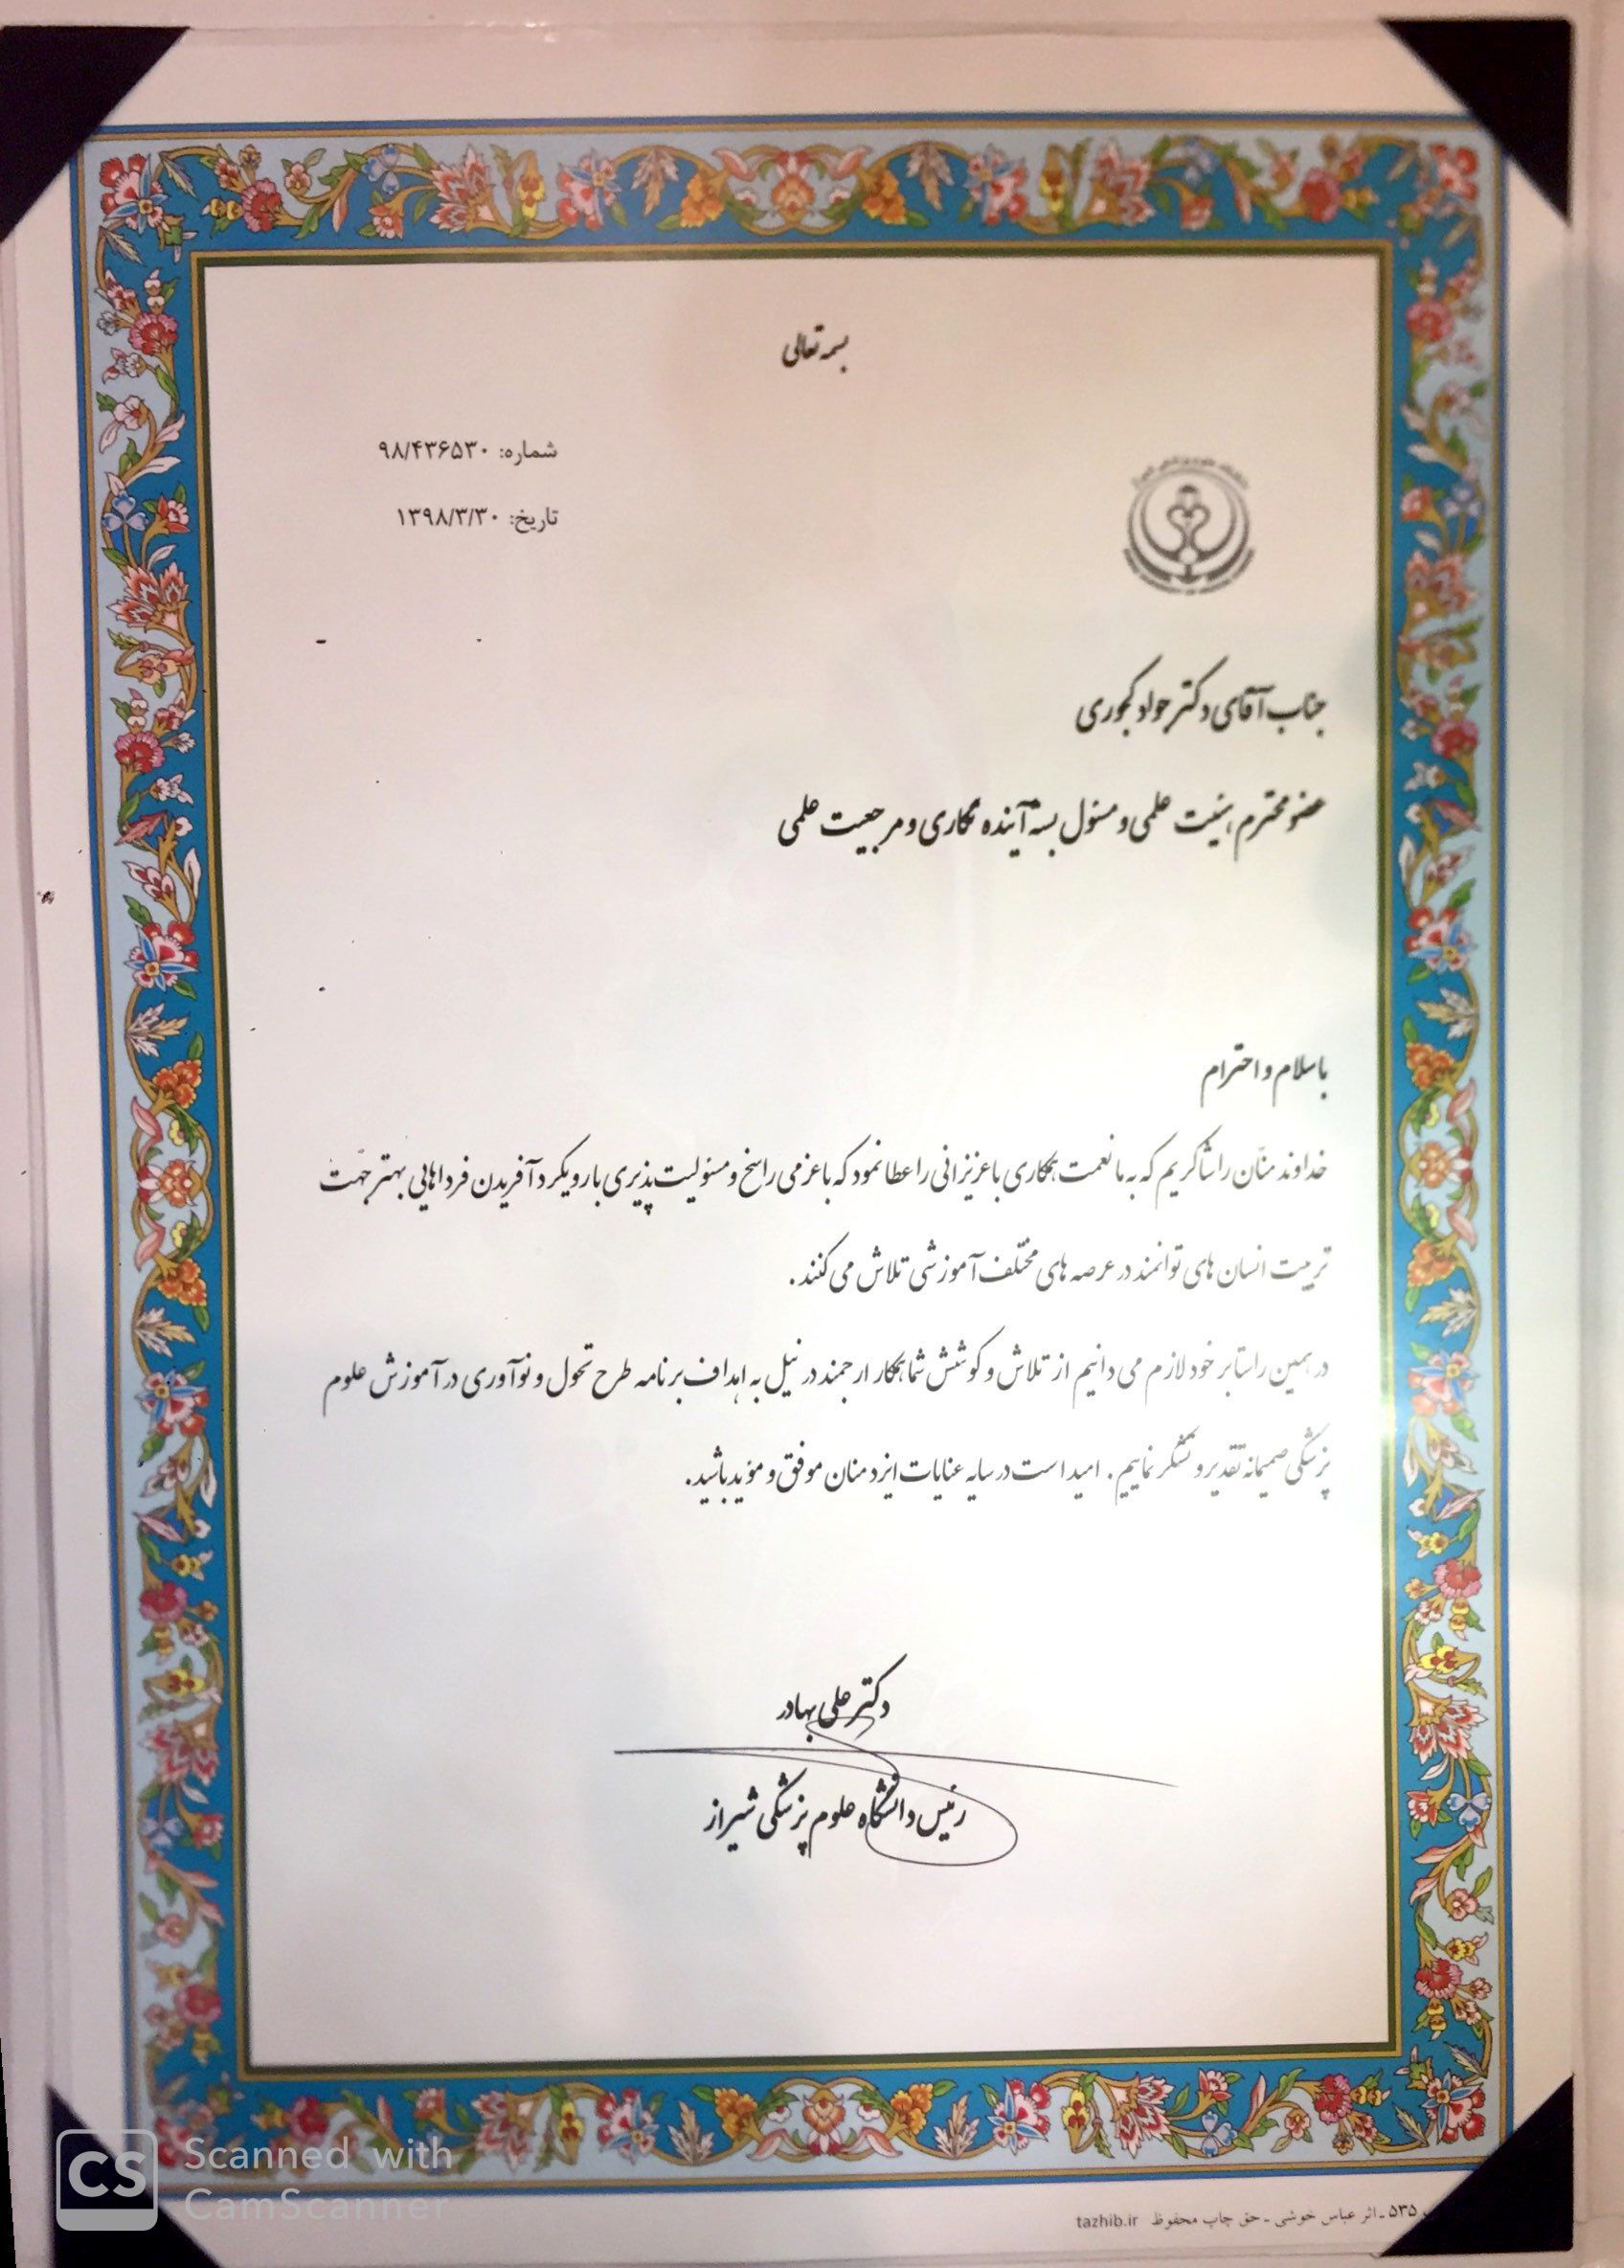 بسمه تعالی
شماره: ۹۸/۴۳۶۵۳۰
تاریخ: ۱۳۹۸/۳/۳۰
جناب آقای دکتر جواد کجوری
عضو محترم هیئت علمی و مسئول بسته آینده نگاری و مرجعیت علمی
با سلام و احترام
خداوند منّان را شاکریم که به ما نعمت همکاری با عزیزانی را عطا نمود که با عزمی راسخ و مسئولیت پذیری با رویکرد آفریدن فرداهایی بهتر جهت
تربیت انسان های توانمند در عرصه های مختلف آموزشی تلاش می کنند.
در همین راستا بر خود لازم می دانیم از تلاش و کوشش شما همکار ارجمند در نیل به اهداف برنامه طرح تحول و نوآوری در آموزش علوم
پزشکی صمیمانه تقدیر و تشکر نماییم. امید است در سایه عنایات ایزد منان موفق و مؤید باشید.
دکتر علی بهادر
رئیس دانشگاه علوم پزشکی شیراز
۵۳۵ـ اثر عباس خوشی ـ حق چاپ محفوظ tazhib.ir
CS Scanned with
CamScanner